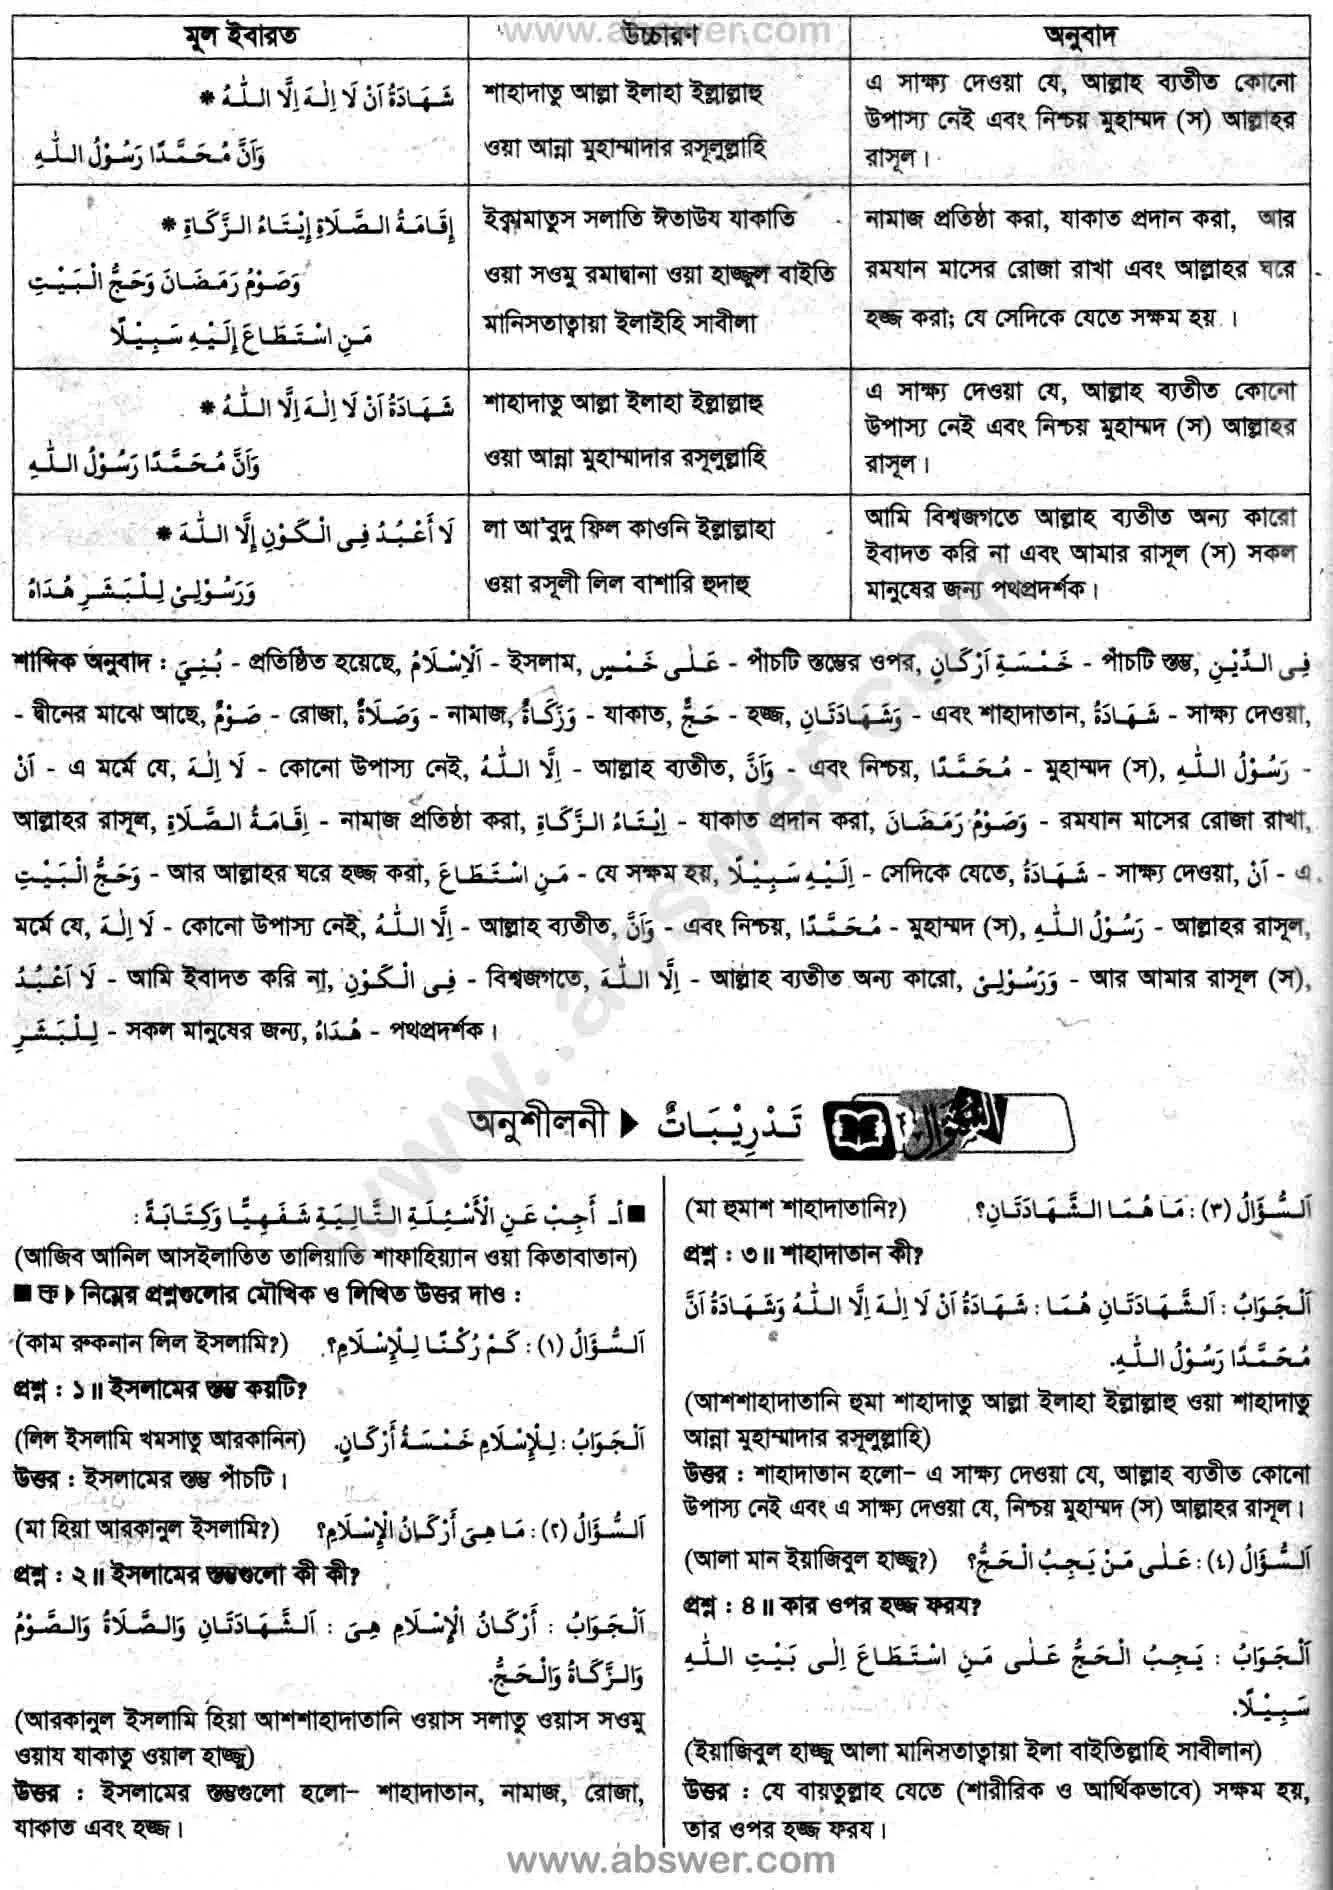 www.abswer.com
মূল ইবারত | উচ্চারণ | অনুবাদ
شَهَادَةُ اَنْ لَا اِلٰهَ اِلَّا اللّٰهُ * | শাহাদাতু আল্লা ইলাহা ইল্লাল্লাহু | এ সাক্ষ্য দেওয়া যে, আল্লাহ ব্যতীত কোনো
উপাস্য নেই এবং নিশ্চয় মুহাম্মদ (স) আল্লাহর
وَاَنَّ مُحَمَّدًا رَسُوْلُ اللّٰهِ | ওয়া আন্না মুহাম্মাদার রসূলুল্লাহি | রাসূল।
إِقَامَةُ الصَّلَاةِ إِيْتَاءُ الزَّكَاةِ * | ইক্বামাতুস সলাতি ঈতাউয যাকাতি | নামাজ প্রতিষ্ঠা করা, যাকাত প্রদান করা, আর
وَصَوْمُ رَمَضَانَ وَحَجُّ الْبَيْتِ | ওয়া সওমু রমাদ্বানা ওয়া হাজ্জুল বাইতি | রমযান মাসের রোজা রাখা এবং আল্লাহর ঘরে
مَنِ اسْتَطَاعَ إِلَيْهِ سَبِيْلًا | মানিসতাত্বায়া ইলাইহি সাবীলা | হজ্জ করা; যে সেদিকে যেতে সক্ষম হয়।
شَهَادَةُ اَنْ لَا اِلٰهَ اِلَّا اللّٰهُ * | শাহাদাতু আল্লা ইলাহা ইল্লাল্লাহু | এ সাক্ষ্য দেওয়া যে, আল্লাহ ব্যতীত কোনো
উপাস্য নেই এবং নিশ্চয় মুহাম্মদ (স) আল্লাহর
وَاَنَّ مُحَمَّدًا رَسُوْلُ اللّٰهِ | ওয়া আন্না মুহাম্মাদার রসূলুল্লাহি | রাসূল।
لَا أَعْبُدُ فِى الْكَوْنِ إِلَّا اللّٰهَ * | লা আ'বুদু ফিল কাওনি ইল্লাল্লাহা | আমি বিশ্বজগতে আল্লাহ ব্যতীত অন্য কারো
ইবাদত করি না এবং আমার রাসূল (স) সকল
وَرَسُوْلِىْ لِلْبَشَرِ هُدَاهُ | ওয়া রসূলী লিল বাশারি হুদাহু | মানুষের জন্য পথপ্রদর্শক।
শাব্দিক অনুবাদ : بُنِيَ - প্রতিষ্ঠিত হয়েছে, اَلْاِسْلَامُ - ইসলাম, عَلٰى خَمْسٍ - পাঁচটি স্তম্ভের ওপর, خَمْسَةِ اَرْكَانٍ - পাঁচটি স্তম্ভ, فِى الدِّيْنِ
- দ্বীনের মাঝে আছে, صَوْمٌ - রোজা, وَصَلَاةٌ - নামাজ, وَزَكَاةٌ - যাকাত, حَجٌّ - হজ্জ, وَشَهَادَتَانِ - এবং শাহাদাতান, شَهَادَةُ - সাক্ষ্য দেওয়া,
اَنْ - এ মর্মে যে, لَا اِلٰهَ - কোনো উপাস্য নেই, اِلَّا اللّٰهُ - আল্লাহ ব্যতীত, وَاَنَّ - এবং নিশ্চয়, مُحَمَّدًا - মুহাম্মদ (স), رَسُوْلُ اللّٰهِ -
আল্লাহর রাসূল, اِقَامَةُ الصَّلَاةِ - নামাজ প্রতিষ্ঠা করা, اِيْتَاءُ الزَّكَاةِ - যাকাত প্রদান করা, وَصَوْمُ رَمَضَانَ - রমযান মাসের রোজা রাখা,
وَحَجُّ الْبَيْتِ - আর আল্লাহর ঘরে হজ্জ করা, مَنِ اسْتَطَاعَ - যে সক্ষম হয়, اِلَيْهِ سَبِيْلًا - সেদিকে যেতে, شَهَادَةُ - সাক্ষ্য দেওয়া, اَنْ - এ
মর্মে যে, لَا اِلٰهَ - কোনো উপাস্য নেই, اِلَّا اللّٰهُ - আল্লাহ ব্যতীত, وَاَنَّ - এবং নিশ্চয়, مُحَمَّدًا - মুহাম্মদ (স), رَسُوْلُ اللّٰهِ - আল্লাহর রাসূল,
لَا اَعْبُدُ - আমি ইবাদত করি না, فِى الْكَوْنِ - বিশ্বজগতে, اِلَّا اللّٰهَ - আল্লাহ ব্যতীত অন্য কারো, وَرَسُوْلِىْ - আর আমার রাসূল (স),
لِلْبَشَرِ - সকল মানুষের জন্য, هُدَاهُ - পথপ্রদর্শক।
www.abswer.com
অনুশীলনী ▶ تَدْرِيْبَاتٌ
■ أـ أَجِبْ عَنِ الْأَسْئِلَةِ التَّالِيَةِ شَفَهِيًّا وَكِتَابَةً :
(আজিব আনিল আসইলাতিত তালিয়াতি শাফাহিয়্যান ওয়া কিতাবাতান)
■ ক ▶ নিম্নের প্রশ্নগুলোর মৌখিক ও লিখিত উত্তর দাও :
(কাম রুকনান লিল ইসলামি?) اَلسُّؤَالُ (١) : كَمْ رُكْنًا لِلْإِسْلَامِ؟
প্রশ্ন : ১॥ ইসলামের স্তম্ভ কয়টি?
(লিল ইসলামি খমসাতু আরকানিন) اَلْجَوَابُ : لِلْإِسْلَامِ خَمْسَةُ أَرْكَانٍ.
উত্তর : ইসলামের স্তম্ভ পাঁচটি।
(মা হিয়া আরকানুল ইসলামি?) اَلسُّؤَالُ (٢) : مَا هِىَ أَرْكَانُ الْإِسْلَامِ؟
প্রশ্ন : ২॥ ইসলামের স্তম্ভগুলো কী কী?
اَلْجَوَابُ : أَرْكَانُ الْإِسْلَامِ هِىَ : اَلشَّهَادَتَانِ وَالصَّلَاةُ وَالصَّوْمُ
وَالزَّكَاةُ وَالْحَجُّ.
(আরকানুল ইসলামি হিয়া আশশাহাদাতানি ওয়াস সলাতু ওয়াস সওমু
ওয়ায যাকাতু ওয়াল হাজ্জু)
উত্তর : ইসলামের স্তম্ভগুলো হলো– শাহাদাতান, নামাজ, রোজা,
যাকাত এবং হজ্জ।
(মা হুমাশ শাহাদাতানি?) اَلسُّؤَالُ (٣) : مَا هُمَا الشَّهَادَتَانِ؟
প্রশ্ন : ৩॥ শাহাদাতান কী?
اَلْجَوَابُ : اَلشَّهَادَتَانِ هُمَا : شَهَادَةُ أَنْ لَا إِلٰهَ إِلَّا اللّٰهُ وَشَهَادَةُ أَنَّ
مُحَمَّدًا رَسُوْلُ اللّٰهِ.
(আশশাহাদাতানি হুমা শাহাদাতু আল্লা ইলাহা ইল্লাল্লাহু ওয়া শাহাদাতু
আন্না মুহাম্মাদার রসূলুল্লাহি)
উত্তর : শাহাদাতান হলো– এ সাক্ষ্য দেওয়া যে, আল্লাহ ব্যতীত কোনো
উপাস্য নেই এবং এ সাক্ষ্য দেওয়া যে, নিশ্চয় মুহাম্মদ (স) আল্লাহর রাসূল।
(আলা মান ইয়াজিবুল হাজ্জু?) اَلسُّؤَالُ (٤) : عَلٰى مَنْ يَجِبُ الْحَجُّ؟
প্রশ্ন : ৪॥ কার ওপর হজ্জ ফরয?
اَلْجَوَابُ : يَجِبُ الْحَجُّ عَلٰى مَنِ اسْتَطَاعَ اِلٰى بَيْتِ اللّٰهِ
سَبِيْلًا.
(ইয়াজিবুল হাজ্জু আলা মানিসতাত্বায়া ইলা বাইতিল্লাহি সাবীলান)
উত্তর : যে বায়তুল্লাহ যেতে (শারীরিক ও আর্থিকভাবে) সক্ষম হয়,
তার ওপর হজ্জ ফরয।
www.abswer.com